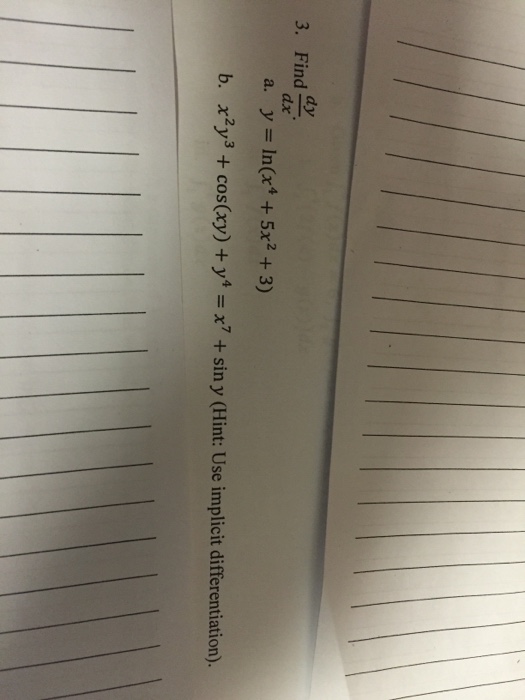 3. Find dy/dx.
a. y = ln(x⁴ + 5x² + 3)
b. x²y³ + cos(xy) + y⁴ = x⁷ + sin y (Hint: Use implicit differentiation).